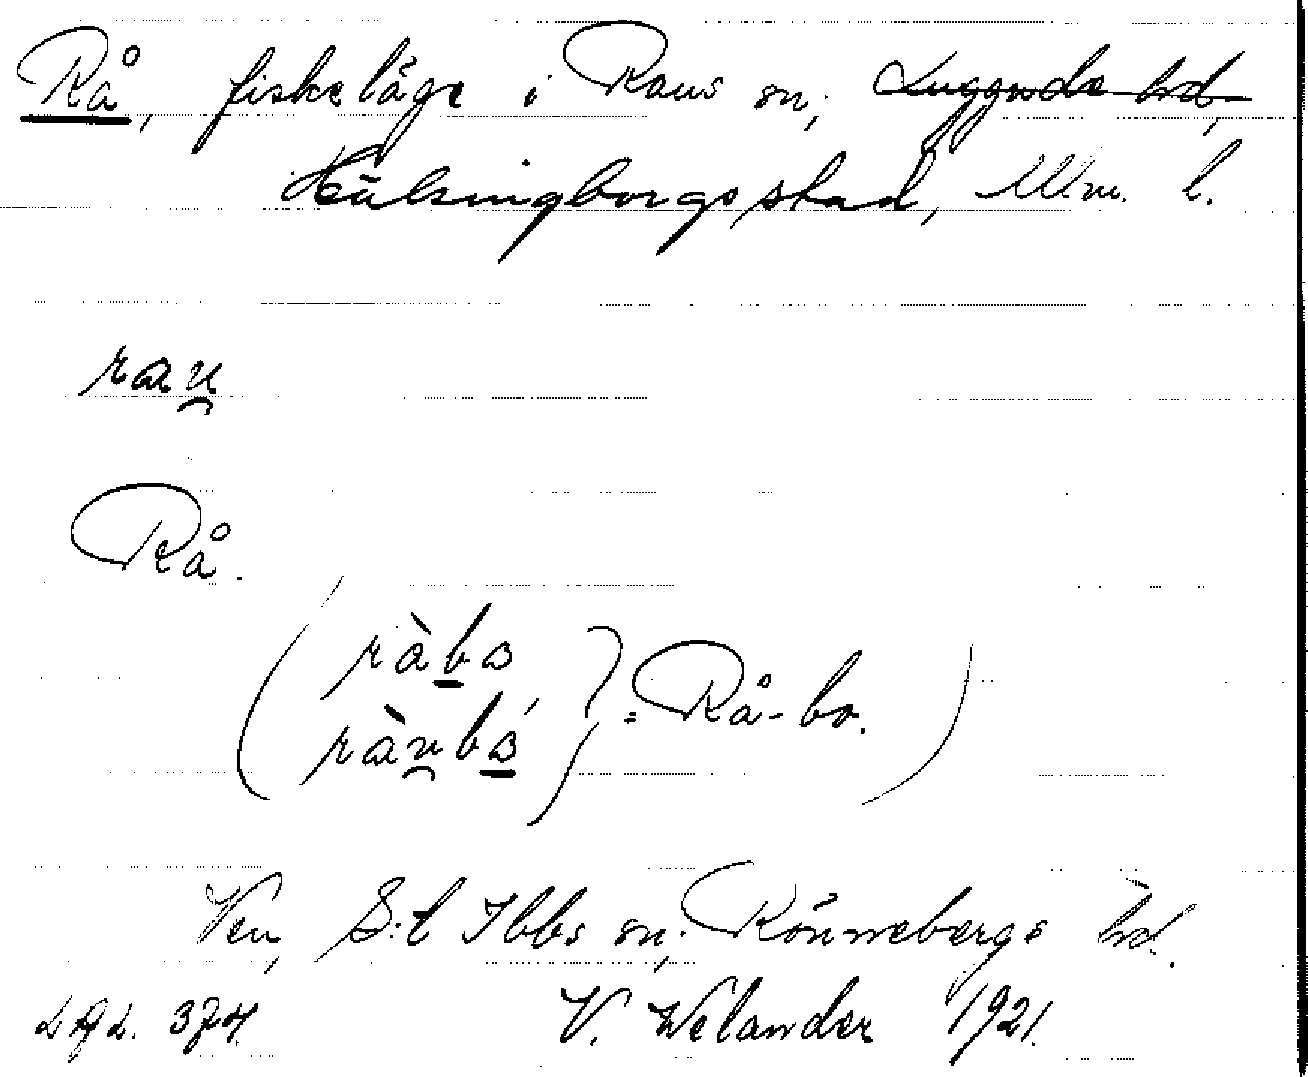 Rå, fiskeläge i Raus sn, Luggude hd,
Hälsingborgs stad, Mlm. l.
rau̯
Rå.
(ràbɷ
ràu̯bɷ́ } = Rå-bo.)
Ven, S:t Ibbs sn, Rönnebergs hd.
V. Welander 1921.